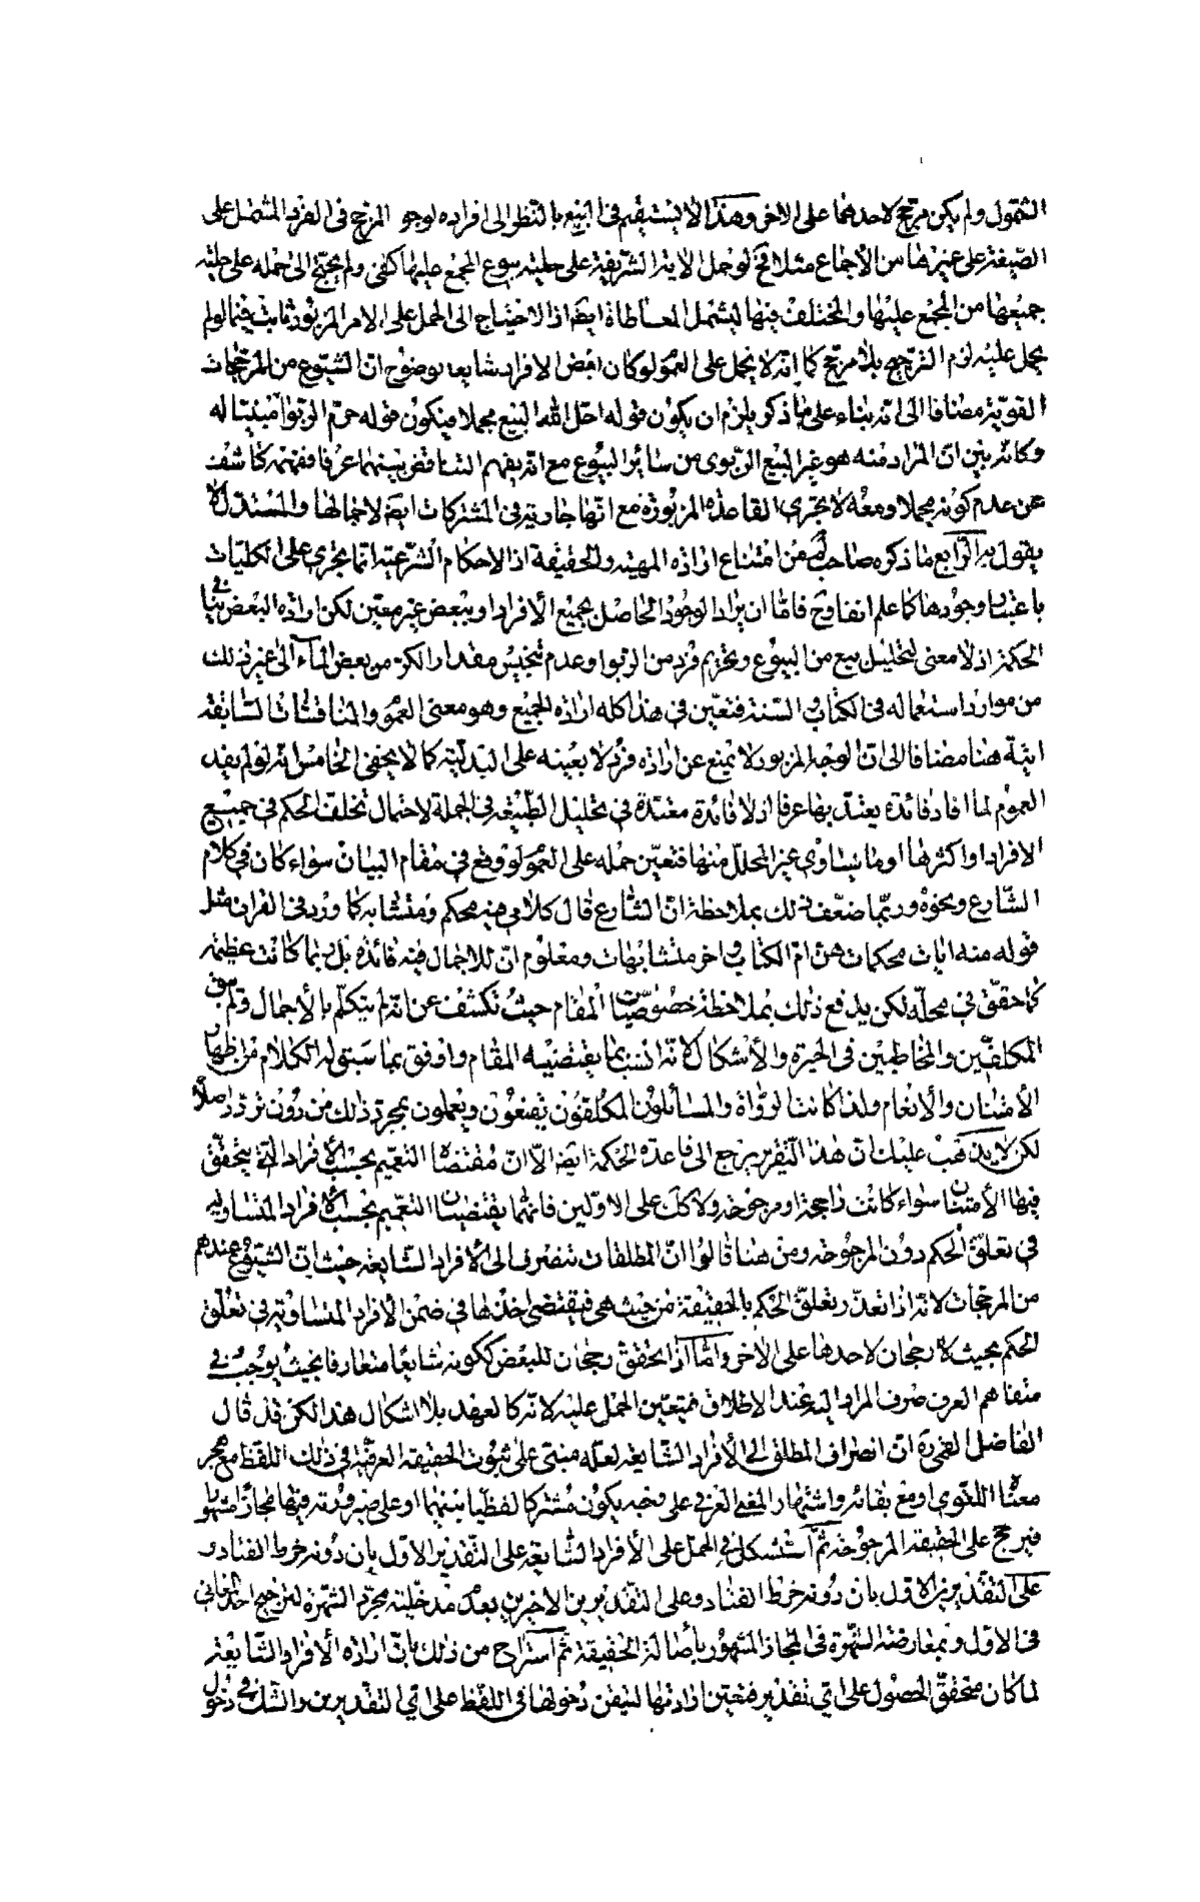 الشمول ولم يكن مرجح لاحدهما على الاخر وهذا لا يستقيم في البيع بالنظر الى افراده لوجو المرجح في الفرد المشتمل على
الصيغة على غيرها من الأجماع مثلا فح لو حمل الاية الشريفة على حلية بيوع المجمع عليها كفى ولم يحتج الى حمله على حلية
جميعها من المجمع عليها والمختلف فيها ليشمل المعاطاة ايضا اذ الاحتياج الى الحمل على الامر المزبور ثابت فيما لو لم
يحمل عليه لزم الترجيح بلا مرجح كما انه لا يحمل على العمو لو كان بعض الافراد شايعا بوضوح ان الشيوع من المرجحات
القوية مضافا الى انه بناء على ما ذكر يلزم ان يكون قوله احل الله البيع مجملا فيكون قوله حرم الربوا مبينا له
وكانه بين ان المراد منه هو غير البيع الربوى من سائر البيوع مع انه يفهم التناقض بينهما عرفا ففهمه كاشف
عن عدم كونه مجملا ومعه لا يجرى القاعدة المزبورة مع انها جارية في المشتركات ايضا لاجمالها والمستدل لا
يقول به الرابع ما ذكره صاحب من امتناع ارادة المهية والحقيقة اذ الاحكام الشرعية انما تجرى على الكليات
باعتبار وجودها كما علم انفا وح فاما ان يراد الوجود الحاصل بجميع الأفراد او ببعض غير معين لكن ارادة البعض ينافي
الحكمة اذ لا معنى لتحليل بيع من البيوع وتحريم فرد من الربوا وعدم تنجيس مقدار الكر من بعض الماء الى غير ذلك
من موارد استعماله في الكتاب والسنة فتعين في هذا كله ارادة الجميع وهو معنى العمو والمناقشات السابقة
اتية هنا مضافا الى ان الوجه المزبور لا يمنع عن ارادة فرد لا بعينه على البدلية كما لا يخفى الخامس انه لو لم يفد
العموم لما افاد فائدة يعتد بها عرفا اذ لا فائدة معتدة في تحليل الطبيعة في الجملة لاحتمال تخلف الحكم في جميع
الافراد او اكثرها او ما يساوى غير المحلل منها فتعين حمله على العمو لو وقع في مقام البيان سواء كان في كلام
الشارع ونحوه وربما ضعف ذلك بملاحظة ان الشارع قال كلامي فيه محكم ومتشابه كما ورد في القران مثل
قوله منه ايات محكمات هن ام الكتاب واخر متشابهات ومعلوم ان للاجمال فيه فائدة بل ربما كانت عظيمة
كما حقق في محله لكن يدفع ذلك بملاحظة خصوصيات المقام حيث تكشف عن انه لم يتكلم بالأجمال ولم يبق
المكلفين والمخاطبين في الحيرة والأشكال لانه انسب بما يقتضيه المقام واوفق بما سيق له الكلام من اظهار
الأمتنان والأنعام ولذا كانت الرواة والمسائلون المكلفون يقنعون ويعملون بمجرد ذلك من دون تردد اصلا
لكن لا يذهب عليك ان هذا التقرير يرجع الى قاعدة الحكمة ايضا الا ان مقتضاها التعميم بحسب الأفراد التي يتحقق
فيها الأمتنان سواء كانت راجحة او مرجوحة ولا كك على الاولين فانهما يقتضيان التعميم بحسب الأفراد المتساوية
في تعلق الحكم دون المرجوحة ومن هنا قالوا ان المطلقات تنصرف الى الأفراد الشايعة حيث ان الشيوع عندهم
من المرجحات لانه اذا تعذر تعلق الحكم بالحقيقة من حيث هي فيقتضي اخذها في ضمن الأفراد المتساوية في تعلق
الحكم بحيث لا رجحان لاحدها على الأخر واما اذا تحقق رجحان للبعض ككونه شايعا متعارفا بحيث يوجب في
متفاهم العرف صرف المراد اليه عند الاطلاق فيتعين الحمل عليه لانه كالعهد بلا اشكال هذا لكن قد قال
الفاضل القمي ره ان انصراف المطلق الى الأفراد الشايعة لعله مبني على ثبوت الحقيقة العرفية في ذلك اللفظ مع هجر
معناه اللغوي او مع بقائه واشتهار المعنى العرفي على وجه يكون مشتركا لفظيا بينهما او على صيرورته فيها مجازا مشهورا
فيرجح على الحقيقة المرجوحة ثم استشكل في الحمل على الأفراد الشايعة على التقدير الاول بان دونه خرط القتاد و
على التقديرين الاول بان دونه خرط القتاد وعلى التقديرين الاخيرين بعدم مدخلية مجرد الشهرة لترجيح احد المعاني
في الاول وبمعارضة الشهرة في المجاز المشهور بأصالة الحقيقة ثم استراح من ذلك بان ارادة الأفراد الشايعة
لما كان متحقق الحصول على اي تقدير فتعين ارادتها لتيقن دخولها في اللفظ على اي التقديرين والشك في دخول